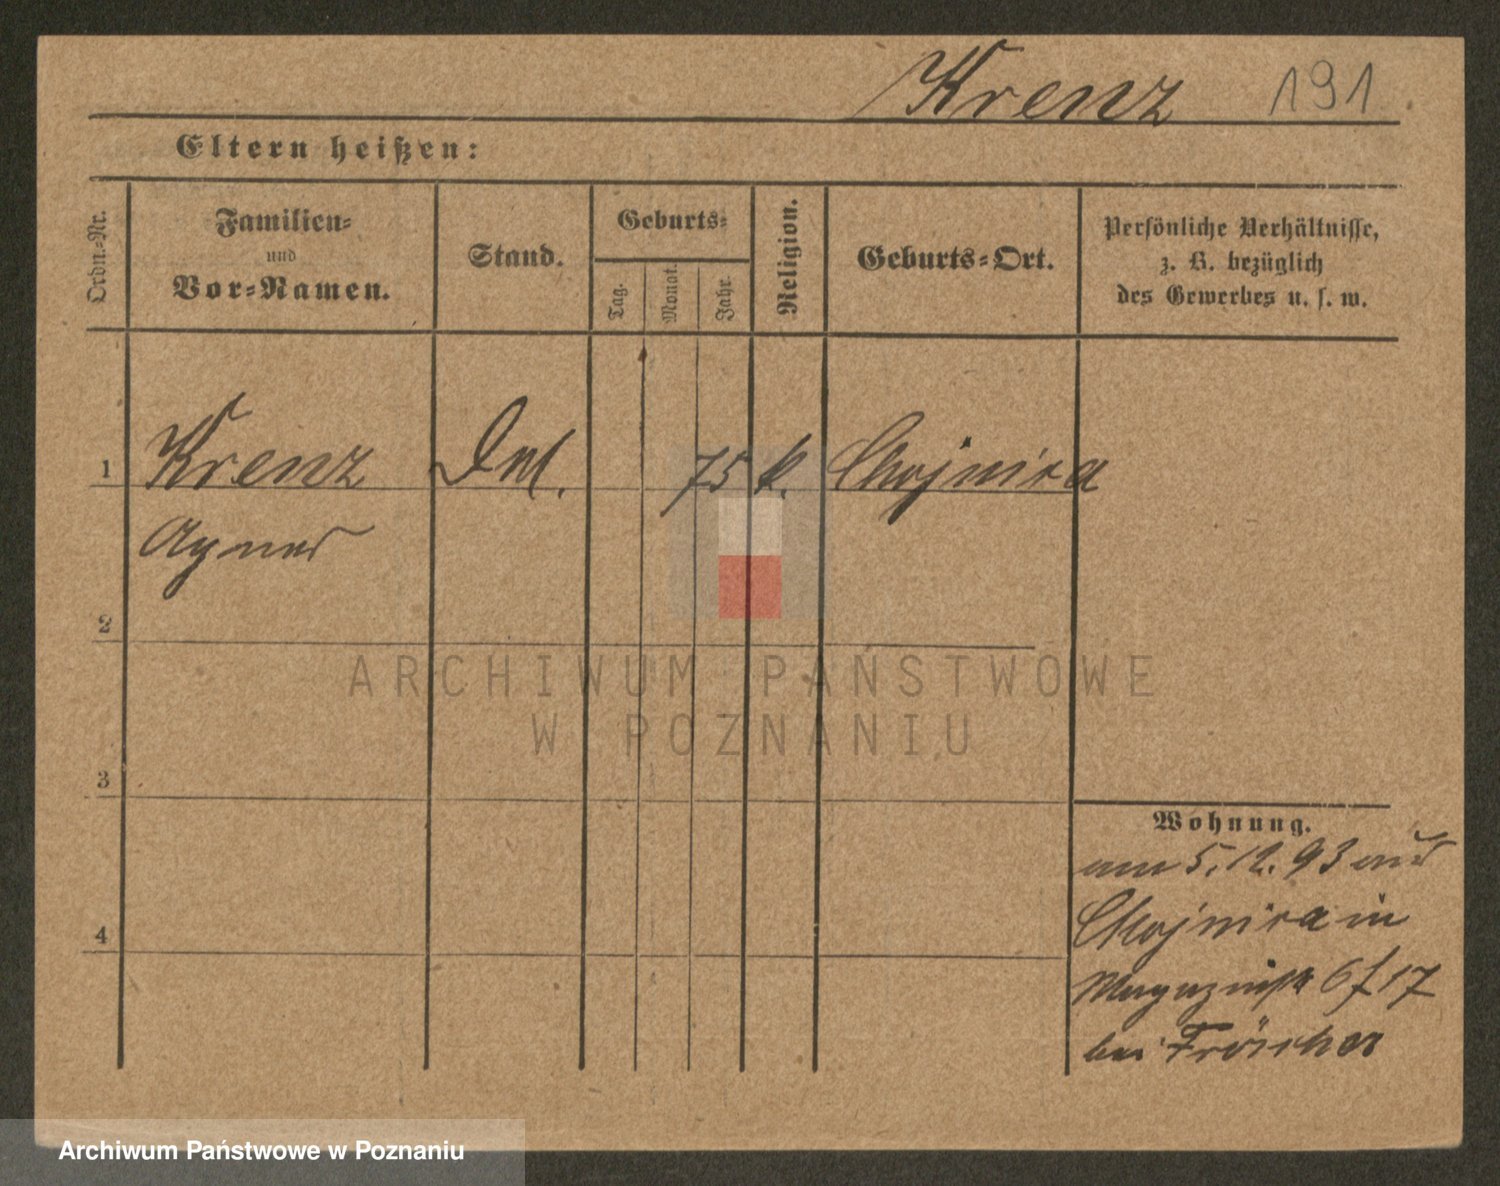 Krenz 191
Eltern heißen:
Ordn.-Nr.
Familien-
und
Vor-Namen.
Stand.
Geburts-
Tag.
Monat.
Jahr.
Religion.
Geburts-Ort.
Persönliche Verhältnisse,
z. B. bezüglich
des Gewerbes u. s. w.
1 Krenz 75 k. Chojnica
Agnes
2
3
4
ARCHIWUM PAŃSTWOWE
W POZNANIU
Wohnung.
am 5.12.93 aus
Chojnica in
6 f 17
bei
Archiwum Państwowe w Poznaniu